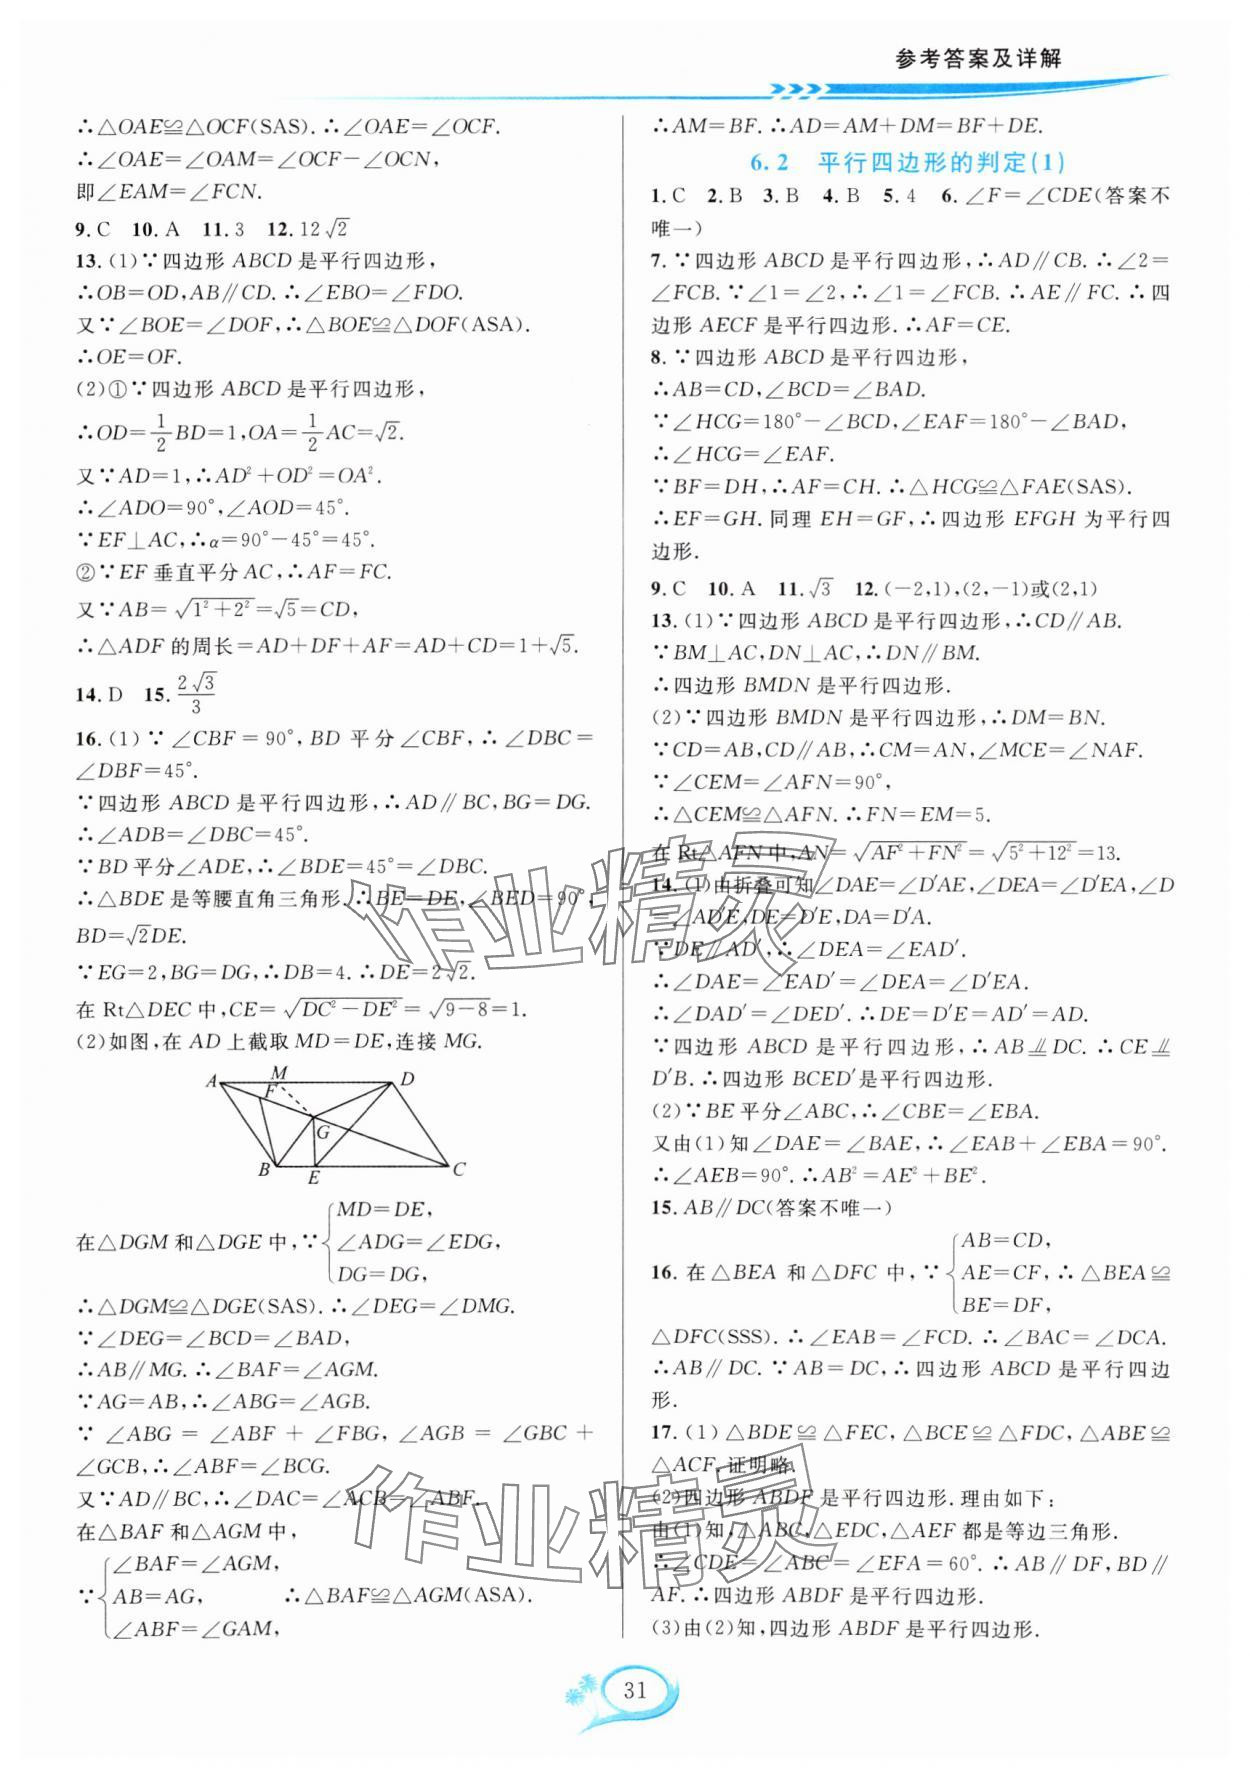 参考答案及详解
∴△OAE≌△OCF(SAS).∴∠OAE=∠OCF.
∴∠OAE−∠OAM=∠OCF−∠OCN,
即∠EAM=∠FCN.
9.C 10.A 11.3 12.12√2
13.(1)∵四边形 ABCD 是平行四边形,
∴OB=OD,AB∥CD.∴∠EBO=∠FDO.
又∵∠BOE=∠DOF,∴△BOE≌△DOF(ASA).
∴OE=OF.
(2)①∵四边形 ABCD 是平行四边形,
∴OD=1/2 BD=1,OA=1/2 AC=√2.
又∵AD=1,∴AD²+OD²=OA².
∴∠ADO=90°,∠AOD=45°.
∵EF⊥AC,∴α=90°−45°=45°.
②∵EF 垂直平分 AC,∴AF=FC.
又∵AB=√(1²+2²)=√5=CD,
∴△ADF 的周长=AD+DF+AF=AD+CD=1+√5.
14.D 15.2√3/3
16.(1)∵∠CBF=90°,BD 平分∠CBF,∴∠DBC=
∠DBF=45°.
∵四边形 ABCD 是平行四边形,∴AD∥BC,BG=DG.
∴∠ADB=∠DBC=45°.
∵BD 平分∠ADE,∴∠BDE=45°=∠DBC.
∴△BDE 是等腰直角三角形.∴BE=DE,∠BED=90°,
BD=√2DE.
∵EG=2,BG=DG,∴DB=4.∴DE=2√2.
在 Rt△DEC 中,CE=√(DC²−DE²)=√(9−8)=1.
(2)如图,在 AD 上截取 MD=DE,连接 MG.
A M D
F
G
B E C
在△DGM 和△DGE 中,∵{MD=DE,
∠ADG=∠EDG,
DG=DG,
∴△DGM≌△DGE(SAS).∴∠DEG=∠DMG.
∵∠DEG=∠BCD=∠BAD,
∴AB∥MG.∴∠BAF=∠AGM.
∵AG=AB,∴∠ABG=∠AGB.
∵∠ABG=∠ABF+∠FBG,∠AGB=∠GBC+
∠GCB,∴∠ABF=∠BCG.
又∵AD∥BC,∴∠DAC=∠ACB=∠ABF.
在△BAF 和△AGM 中,
∵{∠BAF=∠AGM,
AB=AG, ∴△BAF≌△AGM(ASA).
∠ABF=∠GAM,
∴AM=BF.∴AD=AM+DM=BF+DE.
6.2 平行四边形的判定(1)
1.C 2.B 3.B 4.B 5.4 6.∠F=∠CDE(答案不
唯一)
7.∵四边形 ABCD 是平行四边形,∴AD∥CB.∴∠2=
∠FCB.∵∠1=∠2,∴∠1=∠FCB.∴AE∥FC.∴四
边形 AECF 是平行四边形.∴AF=CE.
8.∵四边形 ABCD 是平行四边形,
∴AB=CD,∠BCD=∠BAD.
∵∠HCG=180°−∠BCD,∠EAF=180°−∠BAD,
∴∠HCG=∠EAF.
∵BF=DH,∴AF=CH.∴△HCG≌△FAE(SAS).
∴EF=GH.同理 EH=GF,∴四边形 EFGH 为平行四
边形.
9.C 10.A 11.√3 12.(−2,1),(2,−1)或(2,1)
13.(1)∵四边形 ABCD 是平行四边形,∴CD∥AB.
∵BM⊥AC,DN⊥AC,∴DN∥BM.
∴四边形 BMDN 是平行四边形.
(2)∵四边形 BMDN 是平行四边形,∴DM=BN.
∵CD=AB,CD∥AB,∴CM=AN,∠MCE=∠NAF.
∵∠CEM=∠AFN=90°,
∴△CEM≌△AFN.∴FN=EM=5.
在 Rt△AFN 中,AN=√(AF²+FN²)=√(5²+12²)=13.
14.(1)由折叠可知∠DAE=∠D′AE,∠DEA=∠D′EA,∠D
=∠AD′E,DE=D′E,DA=D′A.
∵DE∥AD′,∴∠DEA=∠EAD′.
∴∠DAE=∠EAD′=∠DEA=∠D′EA.
∴∠DAD′=∠DED′.∴DE=D′E=AD′=AD.
∵四边形 ABCD 是平行四边形,∴AB⫽DC.∴CE⫽
D′B.∴四边形 BCED′是平行四边形.
(2)∵BE 平分∠ABC,∴∠CBE=∠EBA.
又由(1)知∠DAE=∠BAE,∴∠EAB+∠EBA=90°.
∴∠AEB=90°.∴AB²=AE²+BE².
15.AB∥DC(答案不唯一)
16.在△BEA 和△DFC 中,∵{AB=CD,
AE=CF,∴△BEA≌
BE=DF,
△DFC(SSS).∴∠EAB=∠FCD.∴∠BAC=∠DCA.
∴AB∥DC.∵AB=DC,∴四边形 ABCD 是平行四边
形.
17.(1)△BDE≌△FEC,△BCE≌△FDC,△ABE≌
△ACF.证明略.
(2)四边形 ABDF 是平行四边形.理由如下:
由(1)知,△ABC,△EDC,△AEF 都是等边三角形.
∴∠CDE=∠ABC=∠EFA=60°.∴AB∥DF,BD∥
AF.∴四边形 ABDF 是平行四边形.
(3)由(2)知,四边形 ABDF 是平行四边形.
作业精灵
作业精灵
31